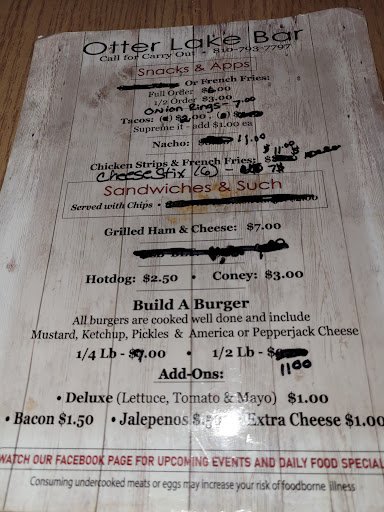 Otter Lake Bar
Call for Carry Out • 810-793-7797
Snacks & Apps
Or French Fries:
Full Order $6.00
1/2 Order $3.00
Onion Rings - 7.00
Tacos: $2.00
Supreme it - add $1.00 ea
Nacho: 11.00
Chicken Strips & French Fries: $11.00
Cheese Stix (6) - 7
Sandwiches & Such
Served with Chips •
Grilled Ham & Cheese: $7.00
Hotdog: $2.50 • Coney: $3.00
Build A Burger
All burgers are cooked well done and include
Mustard, Ketchup, Pickles & America or Pepperjack Cheese
1/4 Lb - $9.00 • 1/2 Lb - $
11.00
Add-Ons:
• Deluxe (Lettuce, Tomato & Mayo) $1.00
• Bacon $1.50 • Jalepenos $.50 • Extra Cheese $1.00
WATCH OUR FACEBOOK PAGE FOR UPCOMING EVENTS AND DAILY FOOD SPECIAL
Consuming undercooked meats or eggs may increase your risk of foodborne illness